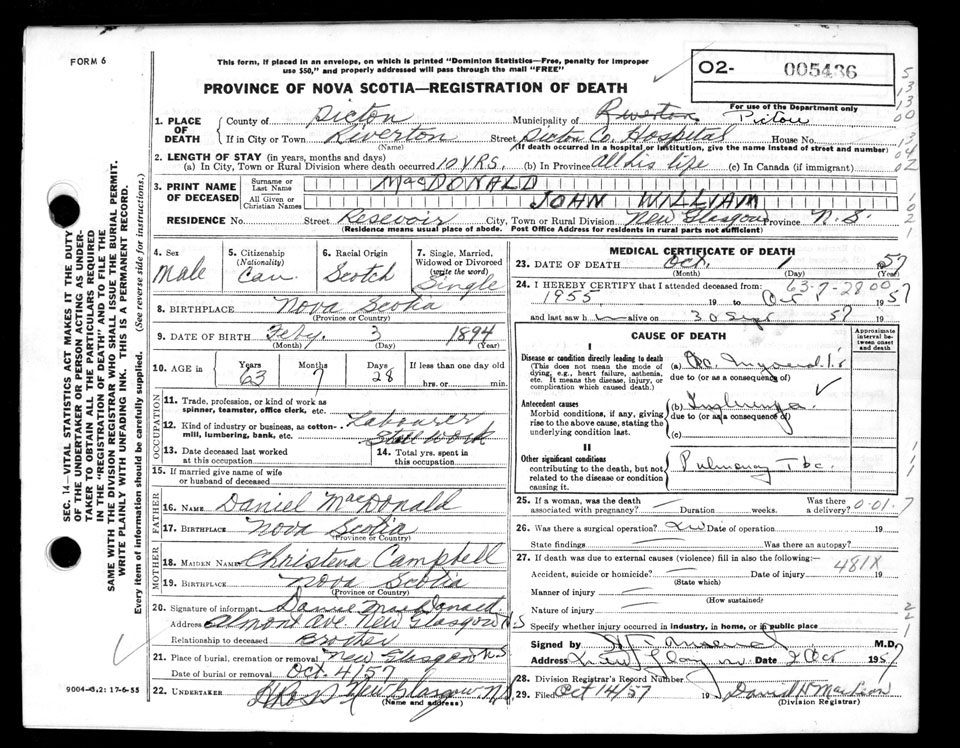 FORM 6
This form, if placed in an envelope, on which is printed "Dominion Statistics—Free, penalty for improper
use $50," and properly addressed will pass through the mail "FREE"
O2- 005436
For use of the Department only
PROVINCE OF NOVA SCOTIA—REGISTRATION OF DEATH
1. PLACE OF DEATH
County of Pictou Municipality of Riverton Pictou
If in City or Town Riverton Street Pictou Co. Hospital House No.
(Name) (If death occurred in a hospital or institution, give the name instead of street and number)
2. LENGTH OF STAY (in years, months and days)
(a) In City, Town or Rural Division where death occurred 10 YRS. (b) In Province all his life (c) In Canada (if immigrant)
3. PRINT NAME OF DECEASED
Surname or Last Name MacDONALD
All Given or Christian Names JOHN WILLIAM
RESIDENCE No. Street Resevoir City, Town or Rural Division New Glasgow Province N.S.
(Residence means usual place of abode. Post Office Address for residents in rural parts not sufficient)
4. Sex Male
5. Citizenship (Nationality) Can.
6. Racial Origin Scotch
7. Single, Married, Widowed or Divorced (write the word) Single
8. BIRTHPLACE Nova Scotia
(Province or Country)
9. DATE OF BIRTH Feby. 3 1894
(Month) (Day) (Year)
10. AGE in Years 63 Months 7 Days 28 If less than one day old hrs. or min.
OCCUPATION
11. Trade, profession, or kind of work as spinner, teamster, office clerk, etc. Labourer
12. Kind of industry or business, as cotton-mill, lumbering, bank, etc. Steel work
13. Date deceased last worked at this occupation
14. Total yrs. spent in this occupation
15. If married give name of wife or husband of deceased
FATHER
16. NAME Daniel MacDonald
17. BIRTHPLACE Nova Scotia
(Province or Country)
MOTHER
18. MAIDEN NAME Christena Campbell
19. BIRTHPLACE Nova Scotia
(Province or Country)
20. Signature of informant MacDonald
Address Almont Ave New Glasgow N.S
Relationship to deceased Brother
21. Place of burial, cremation or removal New Glasgow N.S
Date of burial or removal Oct. 4/57
22. UNDERTAKER New Glasgow, N.S.
(Name and address)
MEDICAL CERTIFICATE OF DEATH
23. DATE OF DEATH Oct. 1 1957
(Month) (Day) (Year)
24. I HEREBY CERTIFY that I attended deceased from: 63-7-28 00
1955 19 to Oct 1 1957
and last saw h alive on 30 Sept 57 19
CAUSE OF DEATH
Approximate interval between onset and death
I
Disease or condition directly leading to death
(This does not mean the mode of dying, e.g., heart failure, asthenia, etc. It means the disease, injury, or complication which caused death.)
(a)
due to (or as a consequence of)
Antecedent causes
Morbid conditions, if any, giving rise to the above cause, stating the underlying condition last.
(b)
due to (or as a consequence of)
(c)
II
Other significant conditions
contributing to the death, but not related to the disease or condition causing it.
Pulmonary Tbc.
25. If a woman, was the death associated with pregnancy? — Duration weeks. Was there a delivery? 0-01.7
26. Was there a surgical operation? Date of operation 19
State findings Was there an autopsy?
27. If death was due to external causes (violence) fill in also the following:—
481X
Accident, suicide or homicide? — Date of injury 19
(State which)
Manner of injury —
(How sustained)
Nature of injury —
Specify whether injury occurred in industry, in home, or in public place
Signed by M.D.
Address New Glasgow Date 2 Oct 1957
28. Division Registrar's Record Number
29. Filed Oct 14/57 19 David H MacLean
(Division Registrar)
9004-B.2: 17-6-55
SEC. 14—VITAL STATISTICS ACT MAKES IT THE DUTY
OF THE UNDERTAKER OR PERSON ACTING AS UNDER-
TAKER TO OBTAIN ALL THE PARTICULARS REQUIRED
IN THE "REGISTRATION OF DEATH" AND TO FILE THE
SAME WITH THE DIVISION REGISTRAR WHO SHALL ISSUE THE BURIAL PERMIT.
WRITE PLAINLY WITH UNFADING INK. THIS IS A PERMANENT RECORD.
Every item of information should be carefully supplied. (See reverse side for instructions.)